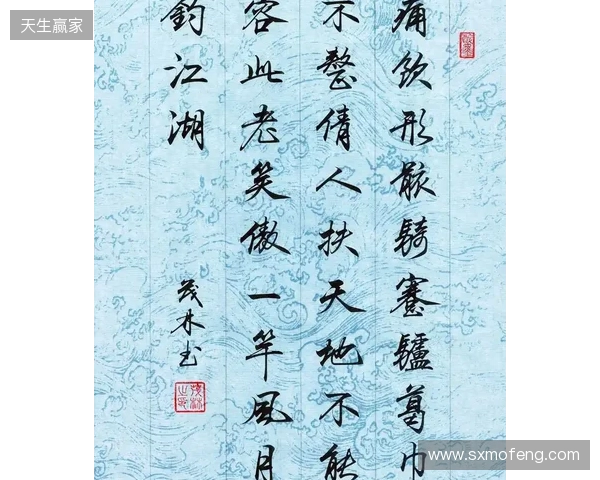 天生赢家
痛饮形骸騎蹇驢葛巾
不整倩人扶天地不能
容此老笑傲一竿風月
钓江湖
茂林书
www.sxmofeng.com